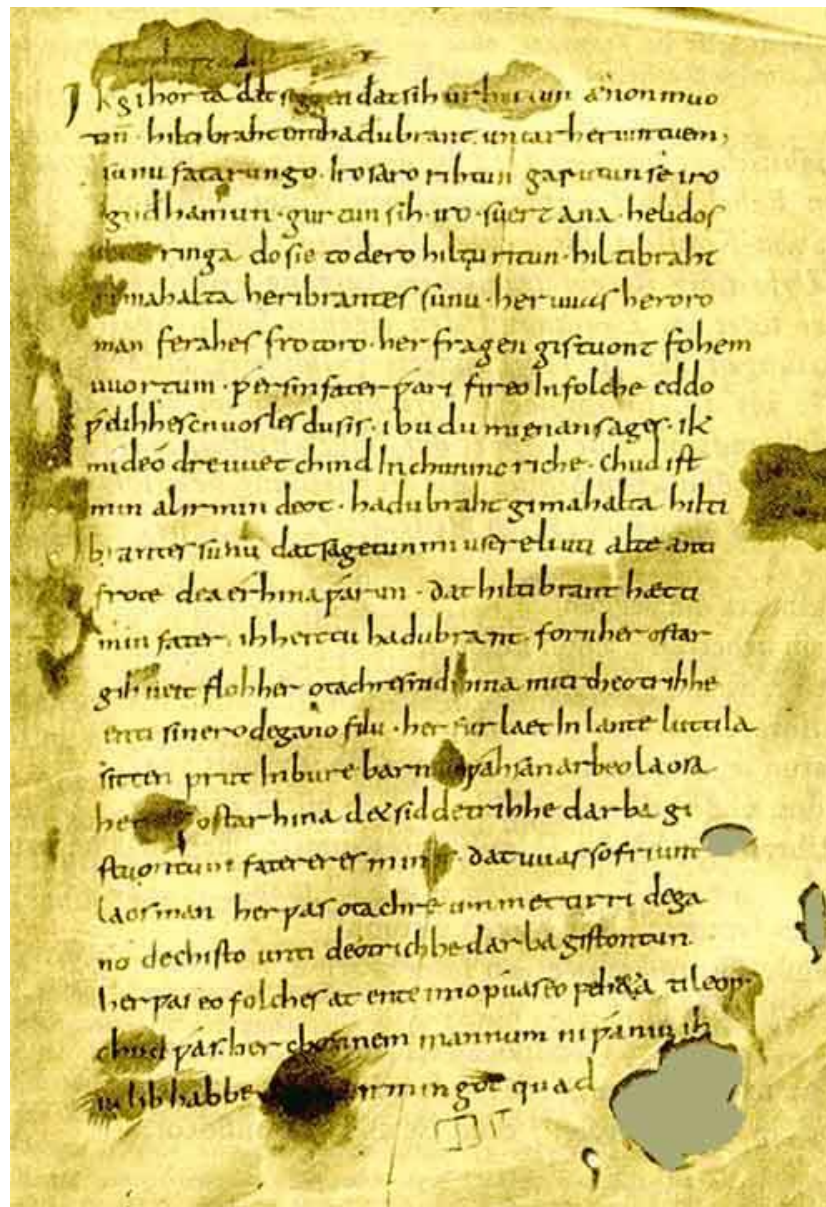 Ik gihorta dat seggen dat sih urhettun ænon muo
tin · hiltibraht enti hadubrant · untar heriun tuem,
sunu fatarungo · iro saro rihtun garutun se iro
gudhamun · gurtun sih · iro · suert ana · helidos
ubar ringa do sie to dero hiltiu ritun · hiltibraht
gimahalta heribrantes sunu · her uuas heroro
man ferahes frotoro · her fragen gistuont fohem
uuortum · ƿer sin fater ƿari fireo In folche eddo
ƿelihhes cnuosles du sis · ibu du mi enan sages · ik
mi deo dre uuet chind In chunincriche · chud ist
min al irmindeot · hadubraht gimahalta hilti
brantes sunu dat sagetun mi usere liuti alte anti
frote dea erhina ƿarun · dat hiltibrant hætti
min fater · ih heittu hadubrant · forn her ostar
gihueit floh her otachres nid hina miti theotrihhe
enti sinero degano filu · her furlaet In lante luttila
sitten prut In bure barn ƿahsan arbeo laosa
her ostar hina det sid detrihhe darba gi
stuontum fatereres mines · dat uuas so friunt
laos man her ƿas otachre ummettirri dega
no dechisto unti deotrichhe darba gistontun
her ƿas eo folches at ente imo ƿuas eo feheta ti leop
chud ƿas her chonnem mannum ni ƿaniu ih
iu lib habbe irmingot quad